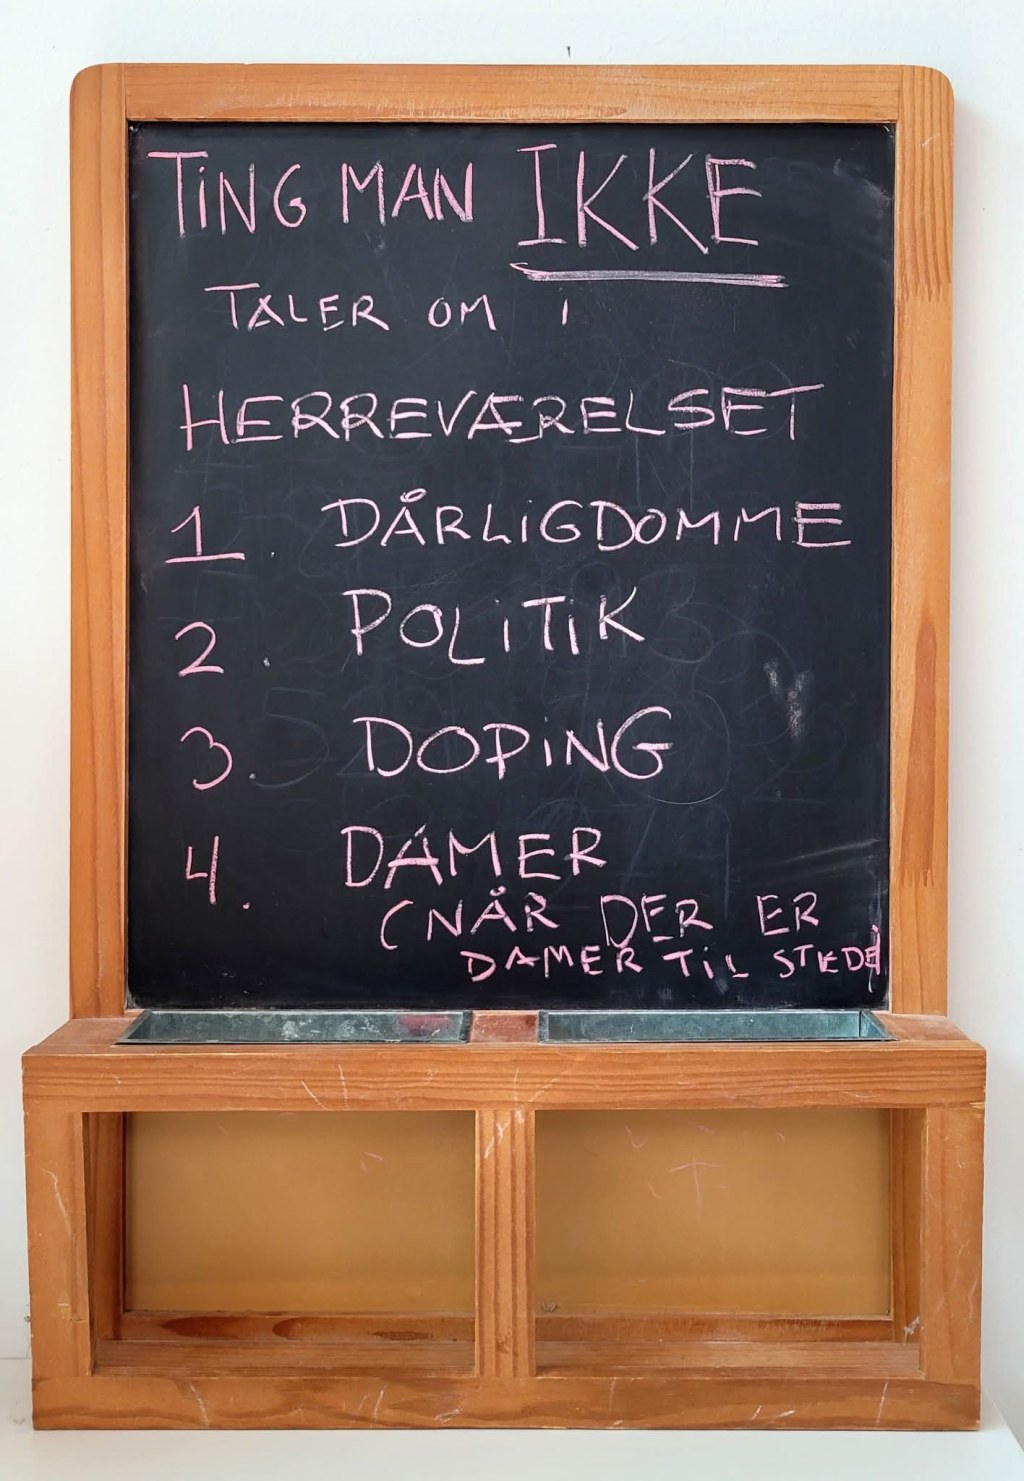 TING MAN IKKE
TALER OM I
HERREVÆRELSET
1. DÅRLIGDOMME
2. POLITIK
3. DOPING
4. DAMER
(NÅR DER ER
DAMER TIL STEDE)